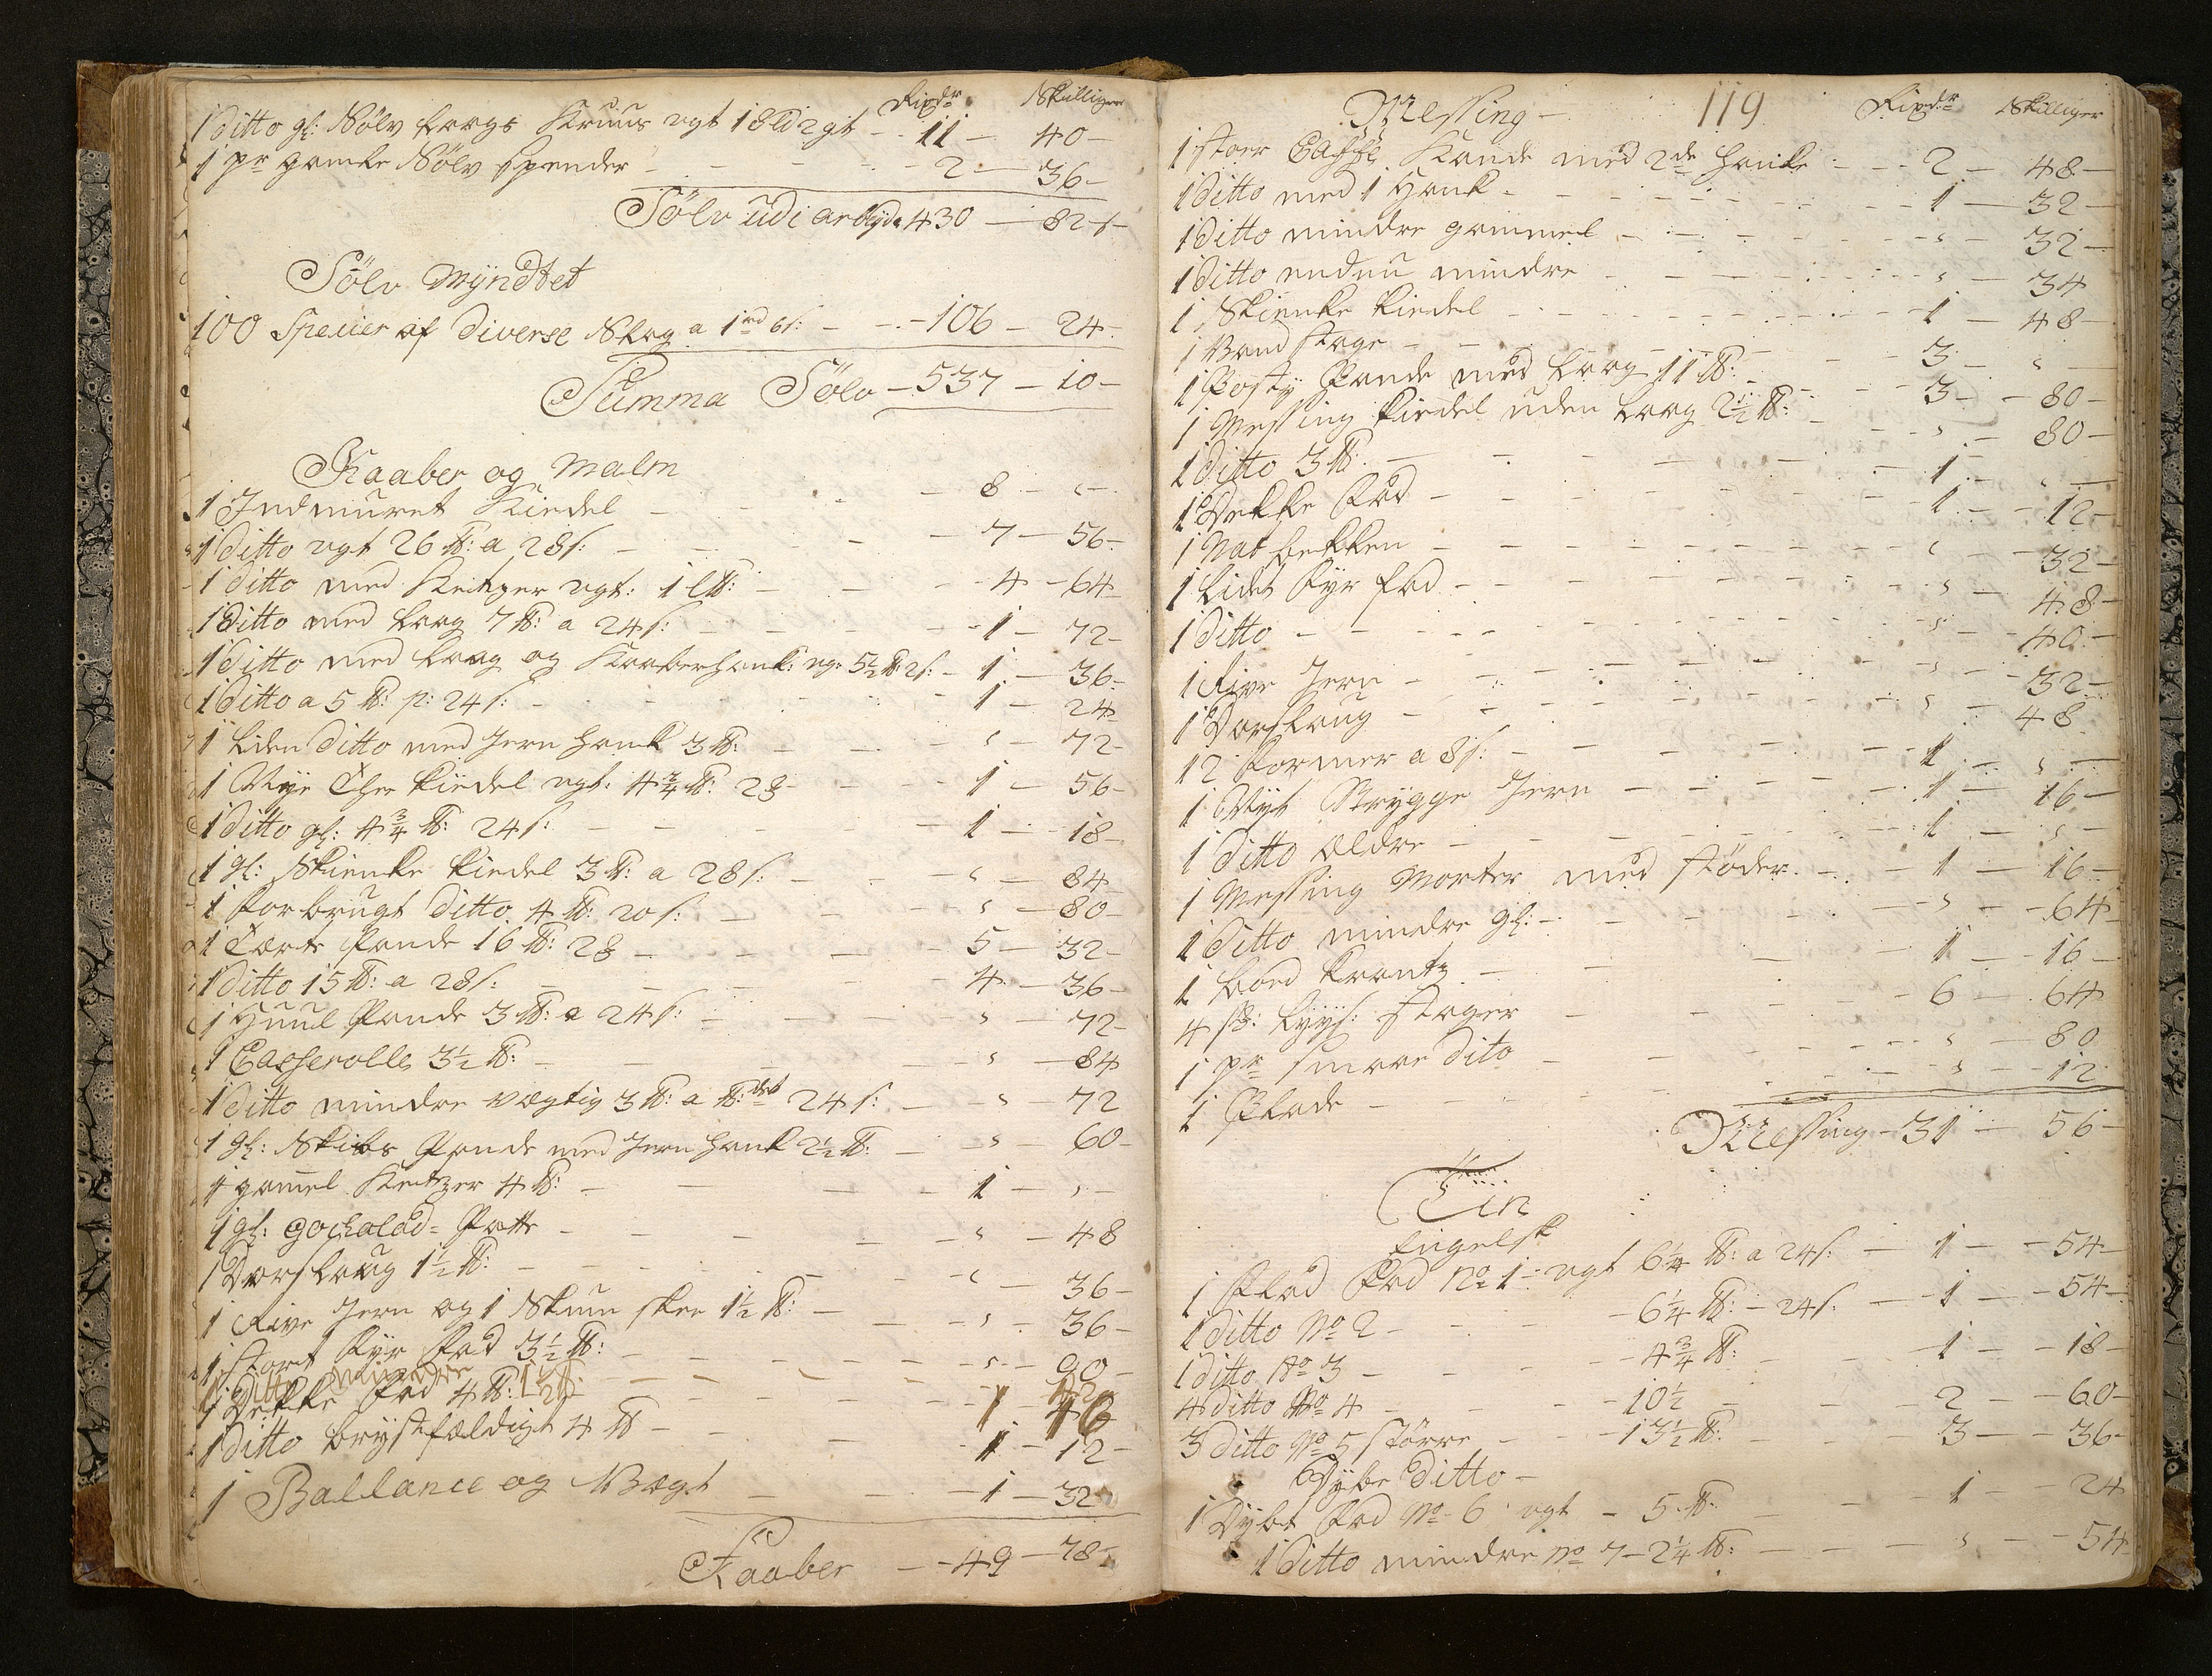 Rixdr Skillinger
1 ditto gl: Sølv laags Kruus vgt 18 ld 2 qt - 11 - 40 -
1 pr gamle Sølv Spender - 2 - 36 -
Sölv udi arbeyde 430 - 82 s -
Sölv Myndtet
100 Specier af diverse Slag a 1 rd 6 s: - 106 - 24 -
Summa Sölv - 537 - 10 -
Kaaber og Malm
1 Indmuret Kiedel - 8 - " -
1 ditto vgt 26 ℔: a 28 s: - 7 - 56 -
1 ditto med vgt: 1 L℔: - 4 - 64 -
1 ditto med laag 7 ℔: a 24 s: - 1 - 72 -
1 ditto med laag og Kaaberhank: vg: 5½ ℔ 2 s: - 1 - 36 -
1 ditto a 5 ℔: p: 24 s: - 1 - 24
1 liden ditto med Jern hank 3 ℔: - " - 72 -
1 Nye Thee kiedel vgt: 4¾ ℔: 28 - 1 - 56 -
1 ditto gl: 4¾ ℔: 24 s: - 1 - 18 -
1 gl: Skienke kiedel 3 ℔: a 28 s: - " - 84
1 forbrugt ditto 4 ℔: 20 s: - " - 80 -
1 Tærte Pande 16 ℔: 28 - 5 - 32 -
1 ditto 15 ℔: a 28 s: - 4 - 36 -
1 Huul Pande 3 ℔: a 24 s: - " - 72 -
1 Casserolle 3½ ℔: - " - 84
1 ditto mindre vægtig 3 ℔: a ℔: det 24 s: - " - 72
1 gl: Skibs Pande med Jern hank 2½ ℔: - " - 60 -
1 gamel 4 ℔: - 1 - " -
1 gl: gochalad = Potte - " - 48
1 Dørslaug 1½ ℔: - " - 36 -
1 Rive Jern og 1 Skum skee 1½ ℔: - " - 36 -
1 stort Fyr Fad 3½ ℔: - " - 90 -
1 Ditto mindre 1½ ℔: - 42
1 Dekke Fad 4 ℔: - 1 - 16
1 ditto brystfældigt 4 ℔ - 1 - 12 -
1 Ballance og Vægt - 1 - 32
Kaaber - 49 - 78 -
Messing - 119 Rixdr Skilliger
1 stoer Caffe Kande med 2de hanke - 2 - 48 -
1 ditto med 1 Hank - 1 - 32 -
1 ditto mindre gammel - " - 32 -
1 ditto endnu mindre - " - 34
1 Skienke kiedel - 1 - 48 -
1 Vand stage - 3 - " -
1 Pande med laag 11 ℔: - 3 - 80 -
1 Messing kiedel uden laag 2½ ℔: - " - 80 -
1 ditto 3 ℔: - 1 - " -
1 Dekke Fad - 1 - 12 -
1 Nat bekken - " - 32 -
1 lidet Fyr fad - " - 48 -
1 ditto - " - 40 -
1 Rive Jern - " - 32 -
1 Dørslaug - " - 48
12 Former a 8 s: - 1 - " -
1 Nyt Strygge Jern - 1 - 16 -
1 ditto ældre - 1 - " -
1 Messing Morter med støder - 1 - 16 -
1 ditto mindre gl: - " - 64
1 bord krantz - 1 - 16 -
4 st: lyys: stager - 6 - 64
1 pr smaae dito - " - 80
1 Plade - " - 12
Messing - 31 - 56 -
Tin
Engelsk
1 flad Fad No 1 - vgt 6¼ ℔: a 24 s: - 1 - 54 -
1 ditto No 2 - 6¼ ℔: - 24 s: - 1 - 54 -
1 ditto No 3 - 4¾ ℔: - 1 - 18 -
4 ditto No 4 - 10½ - 2 - 60 -
3 ditto No 5 större - 13½ ℔: - 3 - 36 -
Dybe ditto -
1 Dybt Fad No 6 vgt - 5 ℔: - 1 - 24
1 ditto mindre No 7 - 2¼ ℔: - " - 54